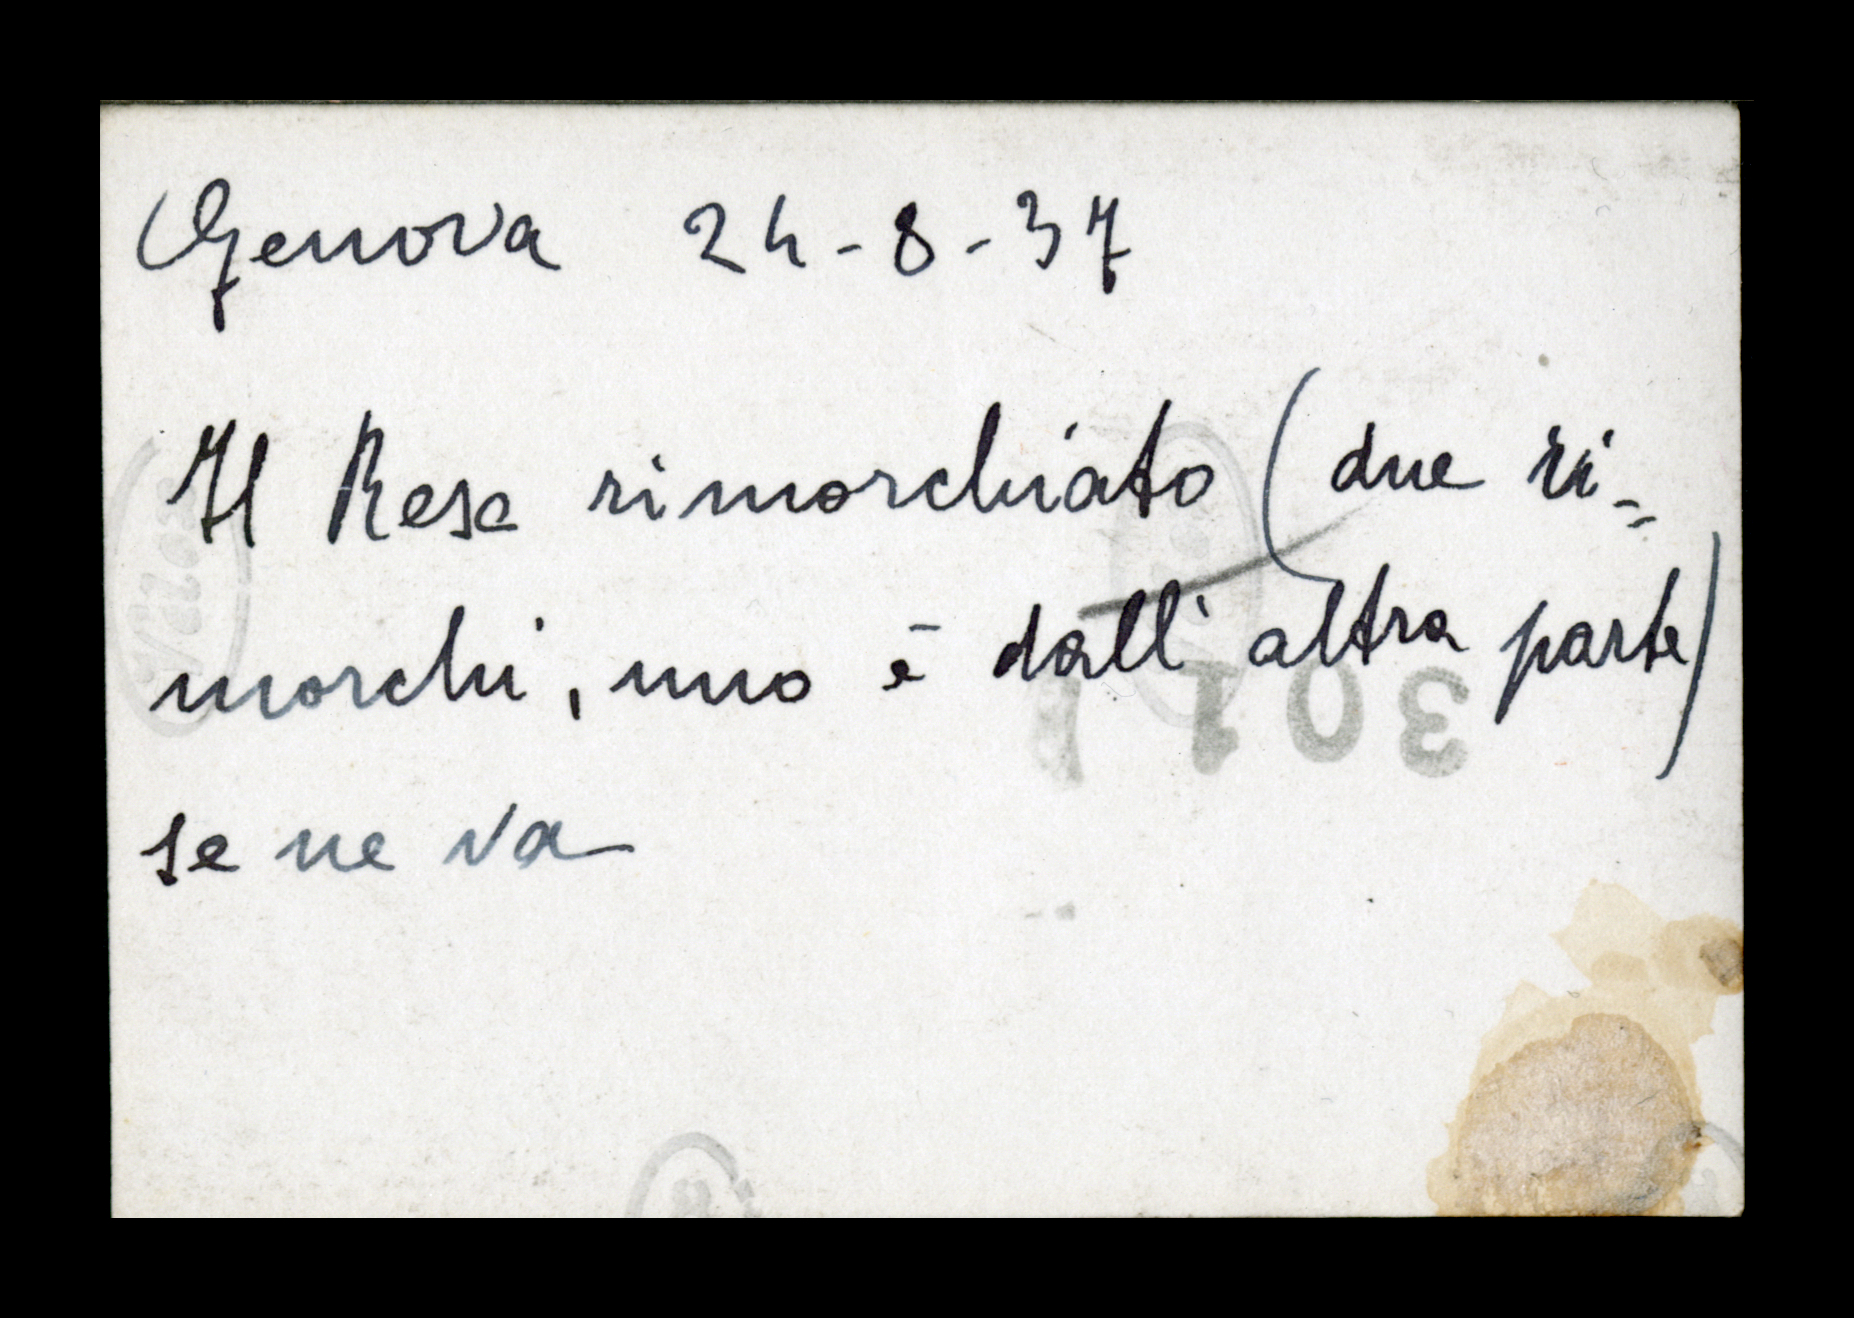 Genova 24-8-37
Il Rese rimorchiato (due ri-
morchi, uno è dall'altra parte)
se ne va
301
Velox